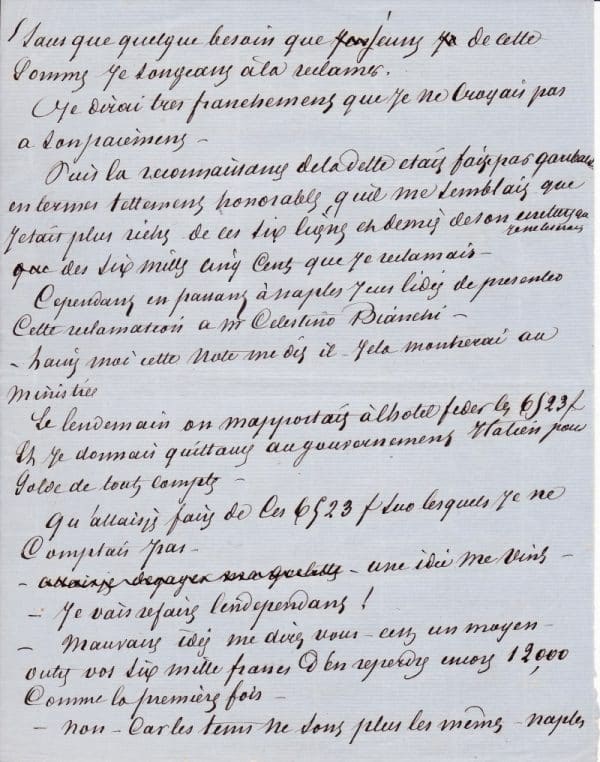 sans que quelque besoin que j'eus de cette
somme je songeais a la reclamer.
Je dirai tres franchement que je ne croyais pas
a son paiement –
Puis la reconnaissance de la dette etait faite par garibaldi
en termes tellement honorables qu'il me semblait que
j'etait plus riche de ces six lignes et demie de son
que des six mille cinq cent que je reclamais –
Cependant en passant à naples j'eus l'idée de presenter
Cette reclamation a mr Celestino Bianchi –
– laissez moi cette note me dit il – je la montrerai au
ministère
Le lendemain on m'apportait à l'hotel feder les 6523 f
Et je donnais quittance au gouvernement Italien pour
solde de tout compte –
Qu'allais je faire de ces 6523 f sur lesquels je ne
Comptais pas –
– une idée me vint –
– Je vais refaire l'independant !
– Mauvaise idée me direz vous – cest un moyen
outre vos six mille francs d'en reperdre encore 12,000
Comme la première fois –
– non – Car les tems ne sont plus les mêmes – naples